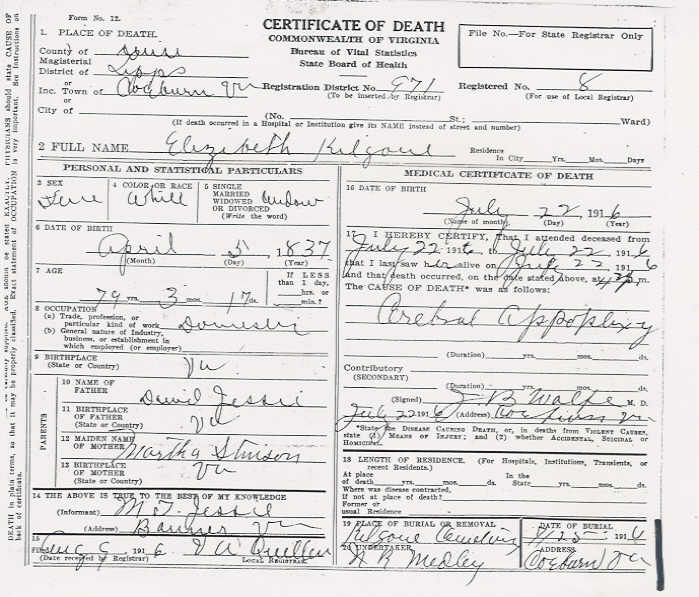 Form No. 12.
CERTIFICATE OF DEATH
COMMONWEALTH OF VIRGINIA
Bureau of Vital Statistics
State Board of Health
File No.—For State Registrar Only
1. PLACE OF DEATH.
County of
Magisterial
District of Lipps
or
Inc. Town of Coeburn Va
or
City of
Registration District No. 971
(To be inserted by Registrar)
Registered No. 8
(For use of Local Registrar)
(No. St.; Ward)
(If death occurred in a Hospital or Institution give its NAME instead of street and number)
2 FULL NAME Elizibeth Kilgore
Residence
In City Yrs. Mos. Days
PERSONAL AND STATISTICAL PARTICULARS
3 SEX
4 COLOR OR RACE
White
5 SINGLE
MARRIED
WIDOWED
OR DIVORCED
(Write the word)
Widow
6 DATE OF BIRTH
April 5, 1837
(Month) (Day) (Year)
7 AGE
79 yrs. 3 mos. 17 ds.
If LESS
than 1 day,
hrs. or
min.?
8 OCCUPATION
(a) Trade, profession, or
particular kind of work
(b) General nature of Industry,
business, or establishment in
which employed (or employer)
Domestic
9 BIRTHPLACE
(State or Country)
Va
PARENTS
10 NAME OF
FATHER
David Jessie
11 BIRTHPLACE
OF FATHER
(State or Country)
Va
12 MAIDEN NAME
OF MOTHER
Martha Stinson
13 BIRTHPLACE
OF MOTHER
(State or Country)
Va
14 THE ABOVE IS TRUE TO THE BEST OF MY KNOWLEDGE
(Informant) M. J. Jessie
(Address) Banner Va
15
Filed Aug 9 1916
(Date received by Registrar) LOCAL REGISTRAR
MEDICAL CERTIFICATE OF DEATH
16 DATE OF BIRTH
July 22, 1916
(Name of month) (Day) (Year)
17 I HEREBY CERTIFY, That I attended deceased from
July 22 1916 to July 22 1916
that I last saw her alive on July 22 1916
and that death occurred, on the date stated above, at m.
The CAUSE OF DEATH* was as follows:
Cerebral Appoplixy
(Duration) yrs. mos. ds.
Contributory
(SECONDARY)
(Duration) yrs. mos. ds.
(Signed) M. D.
July 22 1916 (Address) Va
*State the DISEASE CAUSING DEATH, or, in deaths from VIOLENT CAUSES,
state (1) MEANS OF INJURY; and (2) whether ACCIDENTAL, SUICIDAL or
HOMICIDAL.
18 LENGTH OF RESIDENCE. (For Hospitals, Institutions, Transients, or
recent Residents.)
At place In the
of death yrs. mos. ds. State yrs. mos. ds.
Where was disease contracted,
if not at place of death?
Former or
usual Residence
19 PLACE OF BURIAL OR REMOVAL
Kilgore Cemetery
DATE OF BURIAL
1916
20 UNDERTAKER
Medley
ADDRESS
Coeburn Va